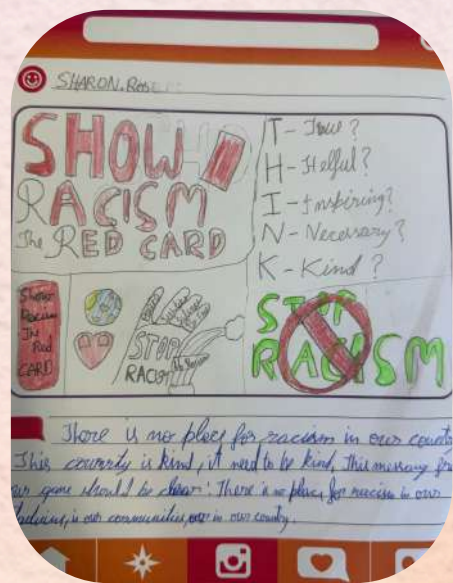 SHARON.Rose
SHOW
RACISM
The RED CARD
T - True?
H - Helful?
I - Inspiring?
N - Necessary?
K - Kind?
Show
Racism
The
Red
CARD
STOP
RACIST
No Racism
STOP
RACISM
There is no place for racism in our county
This country is kind, it need to be kind, This message
our game should be clear: There is no place for racism in our
in our communities, in our county.